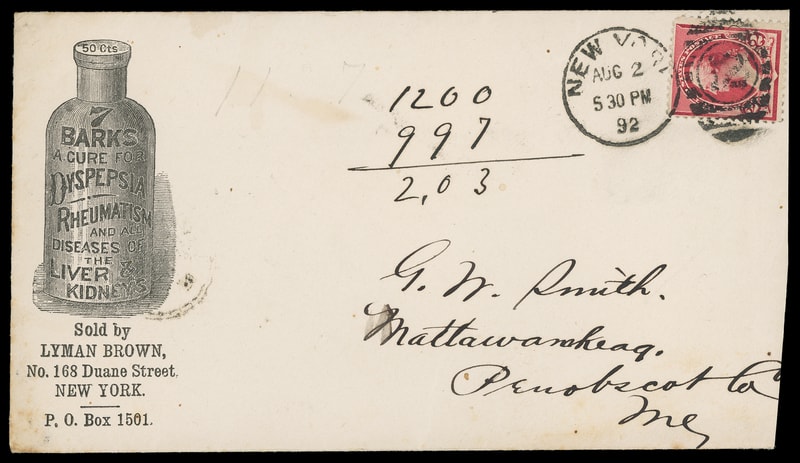 50 Cts
7
BARKS
A CURE FOR
DYSPEPSIA
RHEUMATISM
AND ALL
DISEASES OF
THE
LIVER &
KIDNEYS
Sold by
LYMAN BROWN,
No. 168 Duane Street.
NEW YORK.
P. O. Box 1501.
NEW YORK
AUG 2
5 30 PM
92
1200
997
2,03
G. W. Smith.
Mattawamkeag.
Penobscot Co
Me